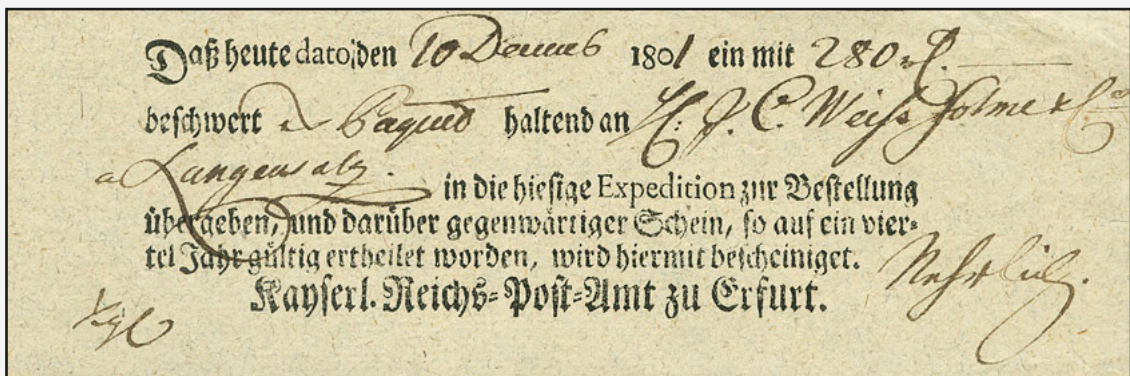 Daß heute dato den 10 Decemb 1801 ein mit 280 rl.
beschwert Paquet haltend an H: J. C. Weiss Söhne & Co
a Langensalz.
in die hiesige Expedition zur Bestellung
übergeben, und darüber gegenwärtiger Schein, so auf ein vier-
tel Jahr gültig ertheilet worden, wird hiermit bescheiniget.
Kayserl. Reichs-Post-Amt zu Erfurt.